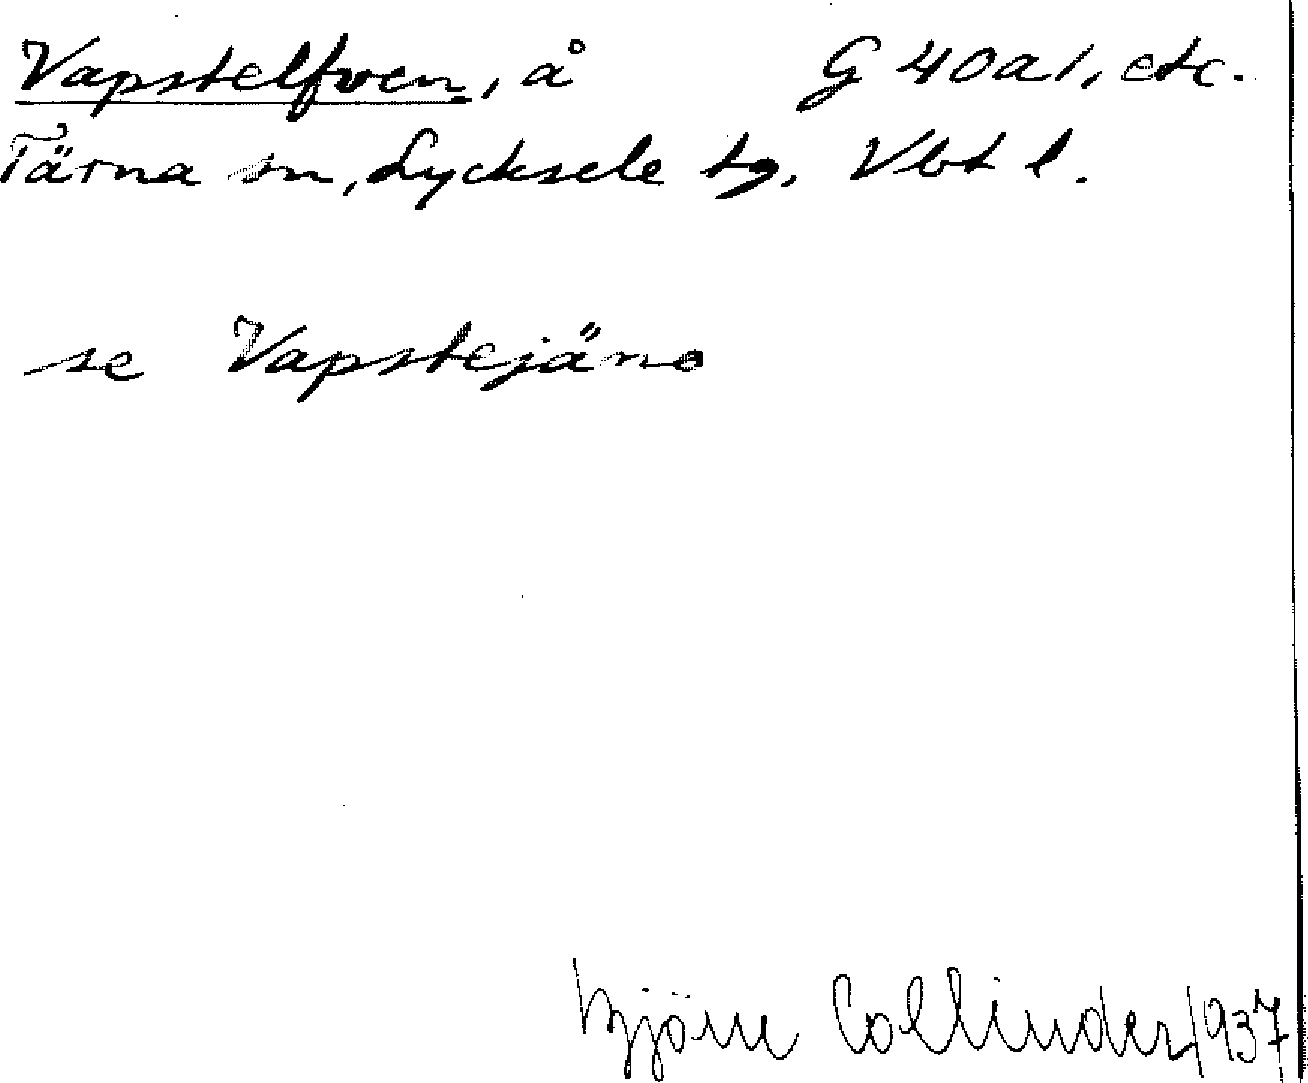 Vapstelfven, å G 40a1, etc.
Tärna sn, Lycksele tg. Vbt l.
se Vapstejäno
Björn Collinder 1937